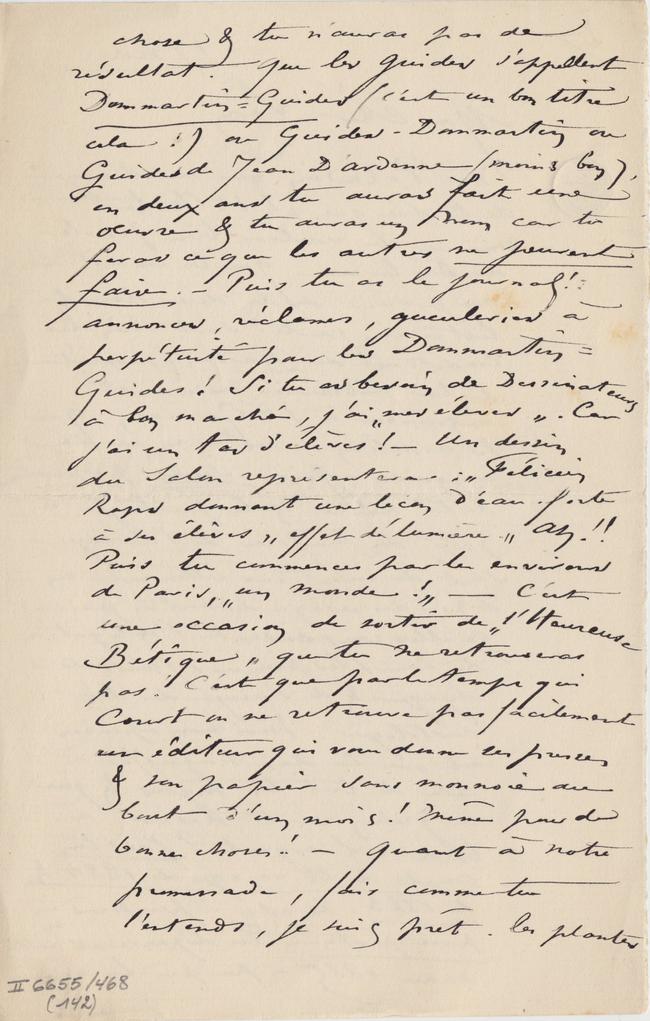 chose & tu n'auras pas de
résultat. Que les Guides s'appellent
Dommartin=Guides (c'est un bon titre
cela !) ou Guides-Dommartin ou
Guides de Jean D'ardenne (moins bon),
en deux ans tu auras fait une
œuvre & tu auras un nom car tu
feras ce que les autres ne peuvent
faire. – Puis tu as le journal !:
annonces, réclames, gueuleries à
perpétuité pour les Dommartin=
Guides ! Si tu as besoin de Dessinateurs
à bon marché, j'ai „mes élèves„. Car
j'ai un tas d'élèves ! – Un dessin
du Salon représentera : „Félicien
Rops donnant une leçon d'eau-forte
à ses élèves„ „effet de lumière„ Ah !!
Puis tu commences par les environs
de Paris, „un monde !„ — C'est
une occasion de sortir de „l'Heureuse
Bétique„ que tu ne retrouveras
pas. C'est que par le temps qui
court on ne retrouve pas facilement
un éditeur qui vous donne ses presses
& son papier sans monnoie au
bout d'un mois ! même pour de
bonnes choses ! – Quant à notre
promenade, fais comme tu
l'entends, je suis prêt. les plantes
II 6655/468
(142)